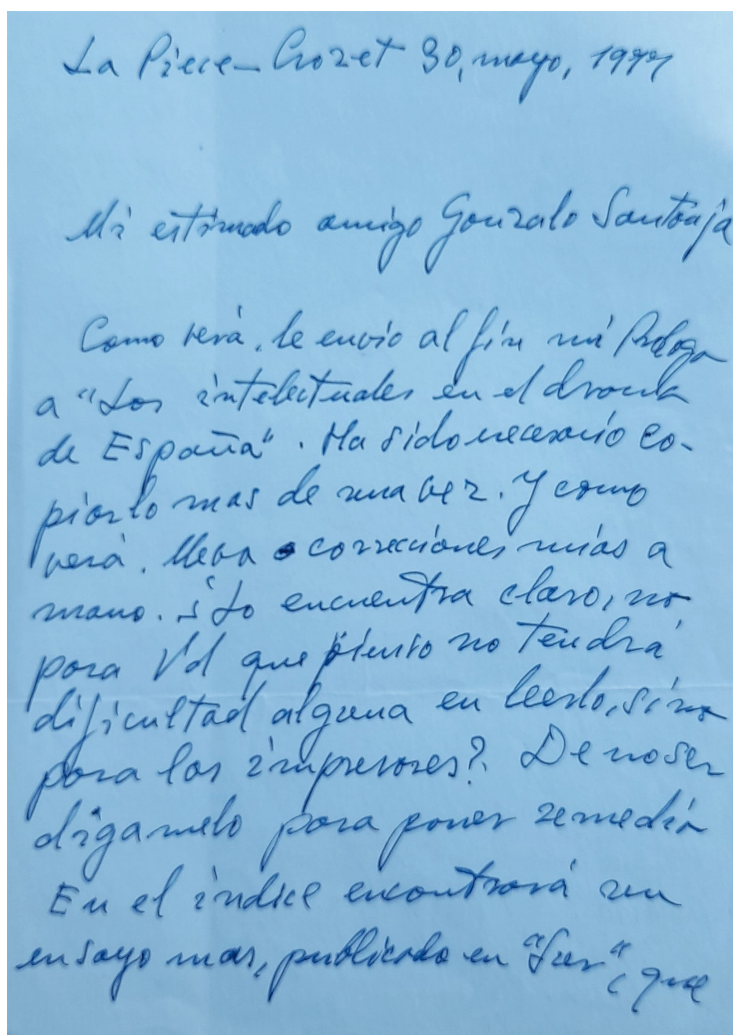 La Piece - Crozet 30, mayo, 1977
Mi estimado amigo Gonzalo Santonja
Como verá, le envio al fin mi Prólogo
a "Los intelectuales en el drama
de España". Ha sido necesario co-
piarlo mas de una vez. Y como
verá. lleva correcciones mias a
mano. ¿Lo encuentra claro, no
para Vd que pienso no tendrá
dificultad alguna en leerlo, sino
para los impresores? De no ser
digamelo para poner remedio
En el índice encontrará un
ensayo mas, publicado en "Sur", que